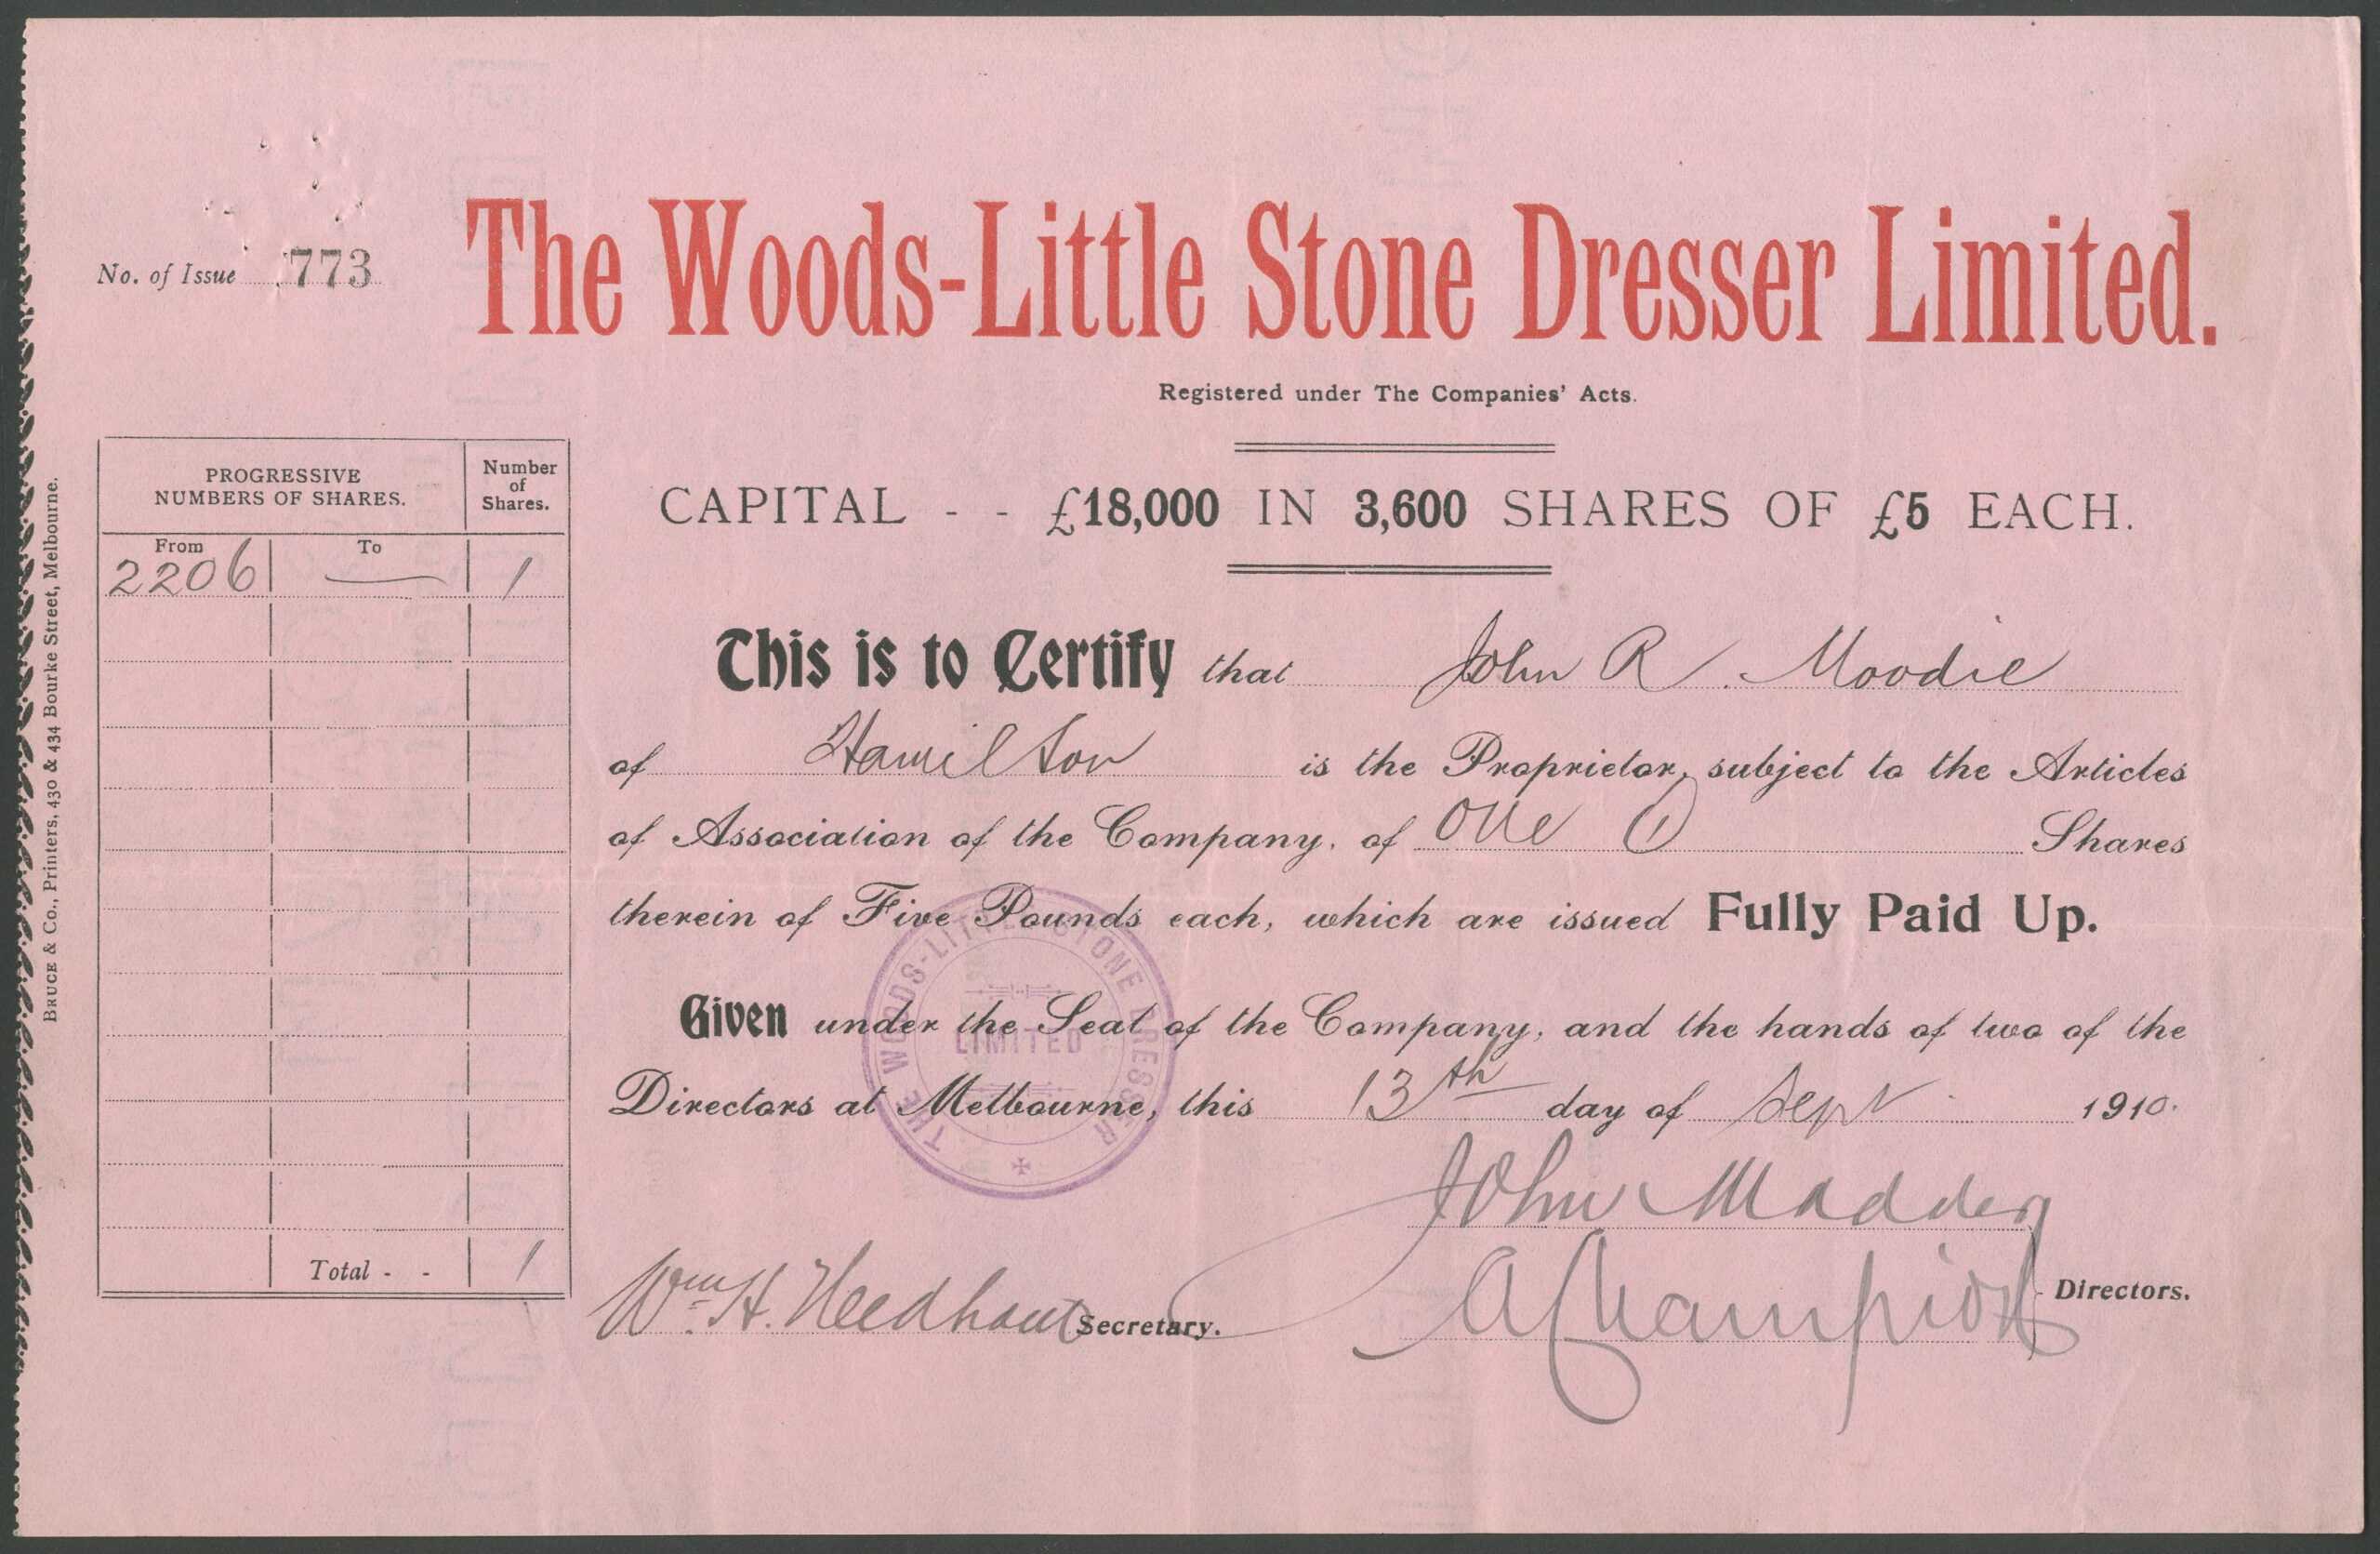 No. of Issue 773
The Woods-Little Stone Dresser Limited.
Registered under The Companies' Acts.
CAPITAL - - £18,000 IN 3,600 SHARES OF £5 EACH.
PROGRESSIVE
NUMBERS OF SHARES.
Number
of
Shares.
From
To
2206 — 1
Total - - 1
BRUCE & Co., Printers, 430 & 434 Bourke Street, Melbourne.
This is to Certify that John R. Moodie
of Hamilton is the Proprietor, subject to the Articles
of Association of the Company, of One (1) Shares
therein of Five Pounds each, which are issued Fully Paid Up.
Given under the Seal of the Company, and the hands of two of the
Directors at Melbourne, this 13th day of Sept 1910.
THE WOODS-LITTLE STONE DRESSER
LIMITED
John Madden
A Champion
Directors.
Wm H. Needham Secretary.